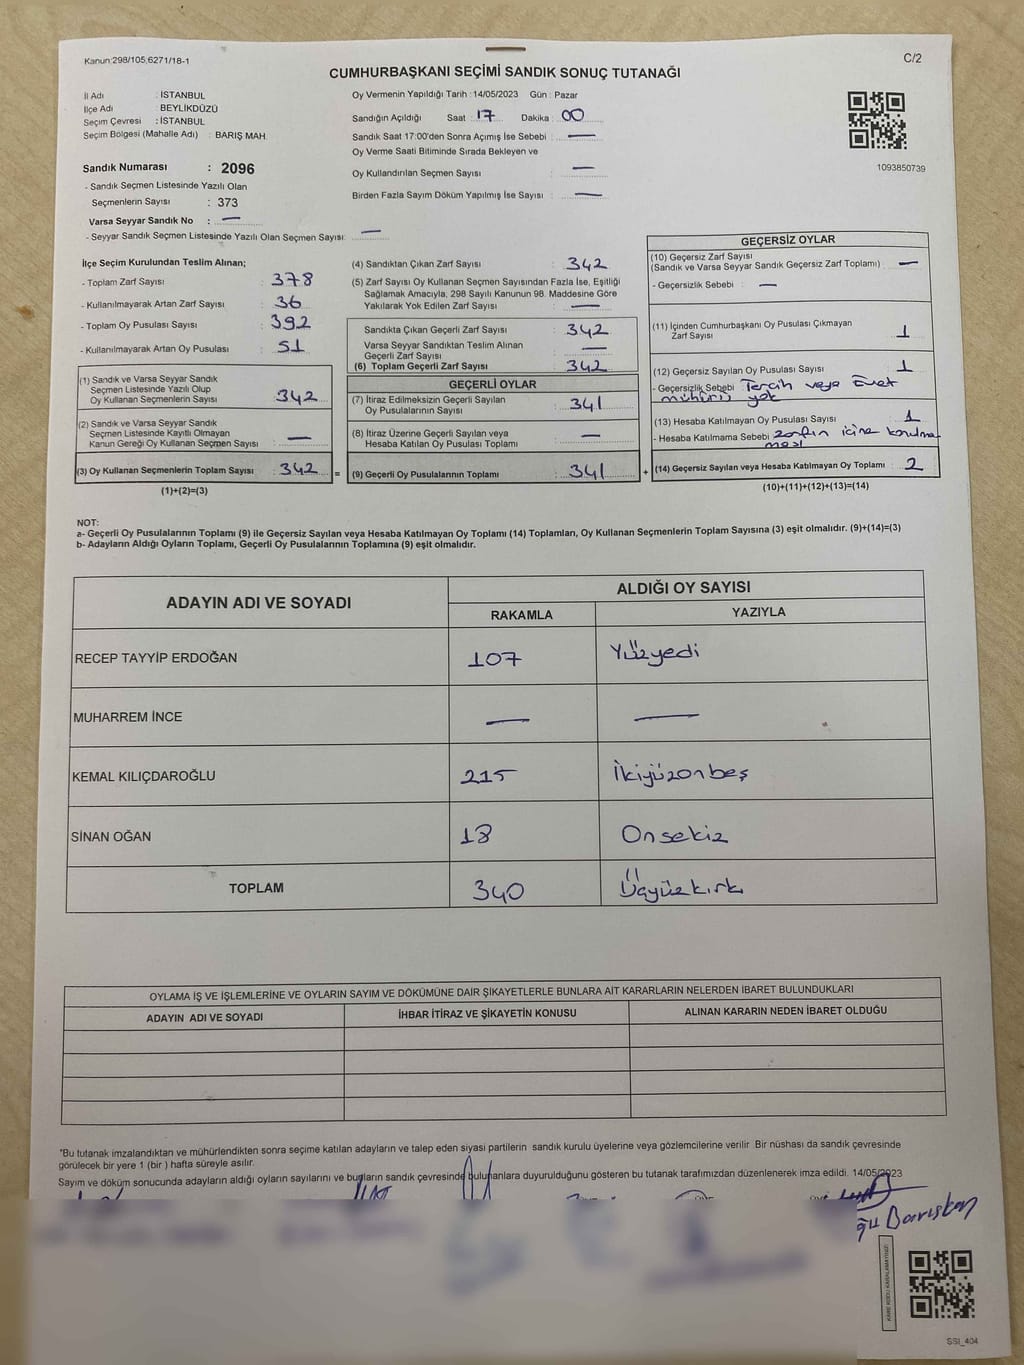 Kanun:298/105,6271/18-1
C/2
CUMHURBAŞKANI SEÇİMİ SANDIK SONUÇ TUTANAĞI
İl Adı : İSTANBUL
İlçe Adı : BEYLİKDÜZÜ
Seçim Çevresi : İSTANBUL
Seçim Bölgesi (Mahalle Adı) : BARIŞ MAH.
Sandık Numarası : 2096
- Sandık Seçmen Listesinde Yazılı Olan
Seçmenlerin Sayısı : 373
Varsa Seyyar Sandık No : —
- Seyyar Sandık Seçmen Listesinde Yazılı Olan Seçmen Sayısı: —
Oy Vermenin Yapıldığı Tarih : 14/05/2023 Gün : Pazar
Sandığın Açıldığı Saat : 17 Dakika : 00
Sandık Saat 17:00'den Sonra Açımış İse Sebebi : —
Oy Verme Saati Bitiminde Sırada Bekleyen ve
Oy Kullandırılan Seçmen Sayısı : —
Birden Fazla Sayım Döküm Yapılmış İse Sayısı : —
1093850739
İlçe Seçim Kurulundan Teslim Alınan;
- Toplam Zarf Sayısı : 378
- Kullanılmayarak Artan Zarf Sayısı : 36
- Toplam Oy Pusulası Sayısı : 392
- Kullanılmayarak Artan Oy Pusulası : 51
(1) Sandık ve Varsa Seyyar Sandık
Seçmen Listesinde Yazılı Olup
Oy Kullanan Seçmenlerin Sayısı : 342
(2) Sandık ve Varsa Seyyar Sandık
Seçmen Listesinde Kayıtlı Olmayan
Kanun Gereği Oy Kullanan Seçmen Sayısı : —
(3) Oy Kullanan Seçmenlerin Toplam Sayısı : 342 =
(1)+(2)=(3)
(4) Sandıktan Çıkan Zarf Sayısı : 342
(5) Zarf Sayısı Oy Kullanan Seçmen Sayısından Fazla İse, Eşitliği
Sağlamak Amacıyla, 298 Sayılı Kanunun 98. Maddesine Göre
Yakılarak Yok Edilen Zarf Sayısı : —
Sandıkta Çıkan Geçerli Zarf Sayısı : 342
Varsa Seyyar Sandıktan Teslim Alınan
Geçerli Zarf Sayısı : —
(6) Toplam Geçerli Zarf Sayısı : 342
GEÇERLİ OYLAR
(7) İtiraz Edilmeksizin Geçerli Sayılan
Oy Pusulalarının Sayısı : 341
(8) İtiraz Üzerine Geçerli Sayılan veya
Hesaba Katılan Oy Pusulası Toplamı : —
(9) Geçerli Oy Pusulalarının Toplamı : 341 +
GEÇERSİZ OYLAR
(10) Geçersiz Zarf Sayısı
(Sandık ve Varsa Seyyar Sandık Geçersiz Zarf Toplamı) : —
- Geçersizlik Sebebi : —
(11) İçinden Cumhurbaşkanı Oy Pusulası Çıkmayan
Zarf Sayısı : 1
(12) Geçersiz Sayılan Oy Pusulası Sayısı : 1
- Geçersizlik Sebebi Tercih veya Evet
mühürü yok
(13) Hesaba Katılmayan Oy Pusulası Sayısı : 1
- Hesaba Katılmama Sebebi zarfın içine konulma
ması
(14) Geçersiz Sayılan veya Hesaba Katılmayan Oy Toplamı : 2
(10)+(11)+(12)+(13)=(14)
NOT:
a- Geçerli Oy Pusulalarının Toplamı (9) ile Geçersiz Sayılan veya Hesaba Katılmayan Oy Toplamı (14) Toplamları, Oy Kullanan Seçmenlerin Toplam Sayısına (3) eşit olmalıdır. (9)+(14)=(3)
b- Adayların Aldığı Oyların Toplamı, Geçerli Oy Pusulalarının Toplamına (9) eşit olmalıdır.
ADAYIN ADI VE SOYADI
ALDIĞI OY SAYISI
RAKAMLA YAZIYLA
RECEP TAYYİP ERDOĞAN 107 Yüzyedi
MUHARREM İNCE — —
KEMAL KILIÇDAROĞLU 215 İkiyüzonbeş
SİNAN OĞAN 18 Onsekiz
TOPLAM 340 Üçyüzkırk
OYLAMA İŞ VE İŞLEMLERİNE VE OYLARIN SAYIM VE DÖKÜMÜNE DAİR ŞİKAYETLERLE BUNLARA AİT KARARLARIN NELERDEN İBARET BULUNDUKLARI
ADAYIN ADI VE SOYADI İHBAR İTİRAZ VE ŞİKAYETİN KONUSU ALINAN KARARIN NEDEN İBARET OLDUĞU
*Bu tutanak imzalandıktan ve mühürlendikten sonra seçime katılan adayların ve talep eden siyasi partilerin sandık kurulu üyelerine veya gözlemcilerine verilir Bir nüshası da sandık çevresinde
görülecek bir yere 1 (bir ) hafta süreyle asılır.
Sayım ve döküm sonucunda adayların aldığı oyların sayılarını ve bunların sandık çevresinde bulunanlara duyurulduğunu gösteren bu tutanak tarafımızdan düzenlenerek imza edildi. 14/05/2023
Barışkan
KARE KODU KARALAMAYINIZ!
SSI_404